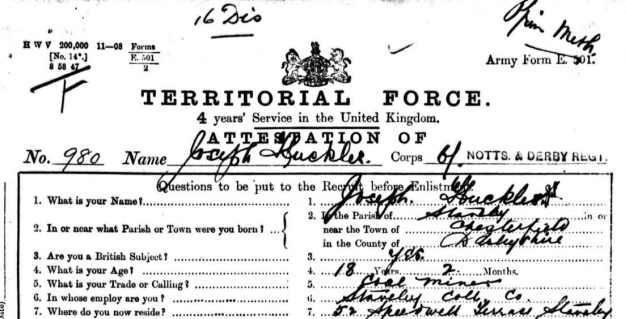 16 Dis
Prim Meth.
H W V 200,000 11—08 Forms
[No. 14*.] E. 501.
8 58 47 2
Army Form E. 501.
TERRITORIAL FORCE.
4 years' Service in the United Kingdom.
ATTESTATION OF
No. 980 Name Joseph Huckler. Corps 6/ NOTTS. & DERBY REGT.
Questions to be put to the Recruit before Enlistment.
1. What is your Name? 1. Joseph
2. In or near what Parish or Town were you born? 2. In the Parish of Staveley in or
near the Town of Chesterfield
in the County of Derbyshire
3. Are you a British Subject? 3. yes.
4. What is your Age? 4. 18 Years. 2 Months.
5. What is your Trade or Calling? 5. Coal miner
6. In whose employ are you? 6. Staveley Colly. Co.
7. Where do you now reside? 7. 52 Speedwell Terrace Staveley